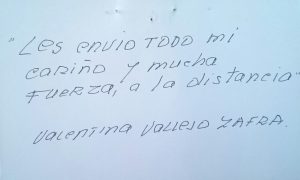 "Les envio TODO mi
cariño y mucha
fuerza, a la distancia"
Valentina Vallejo Zafra.